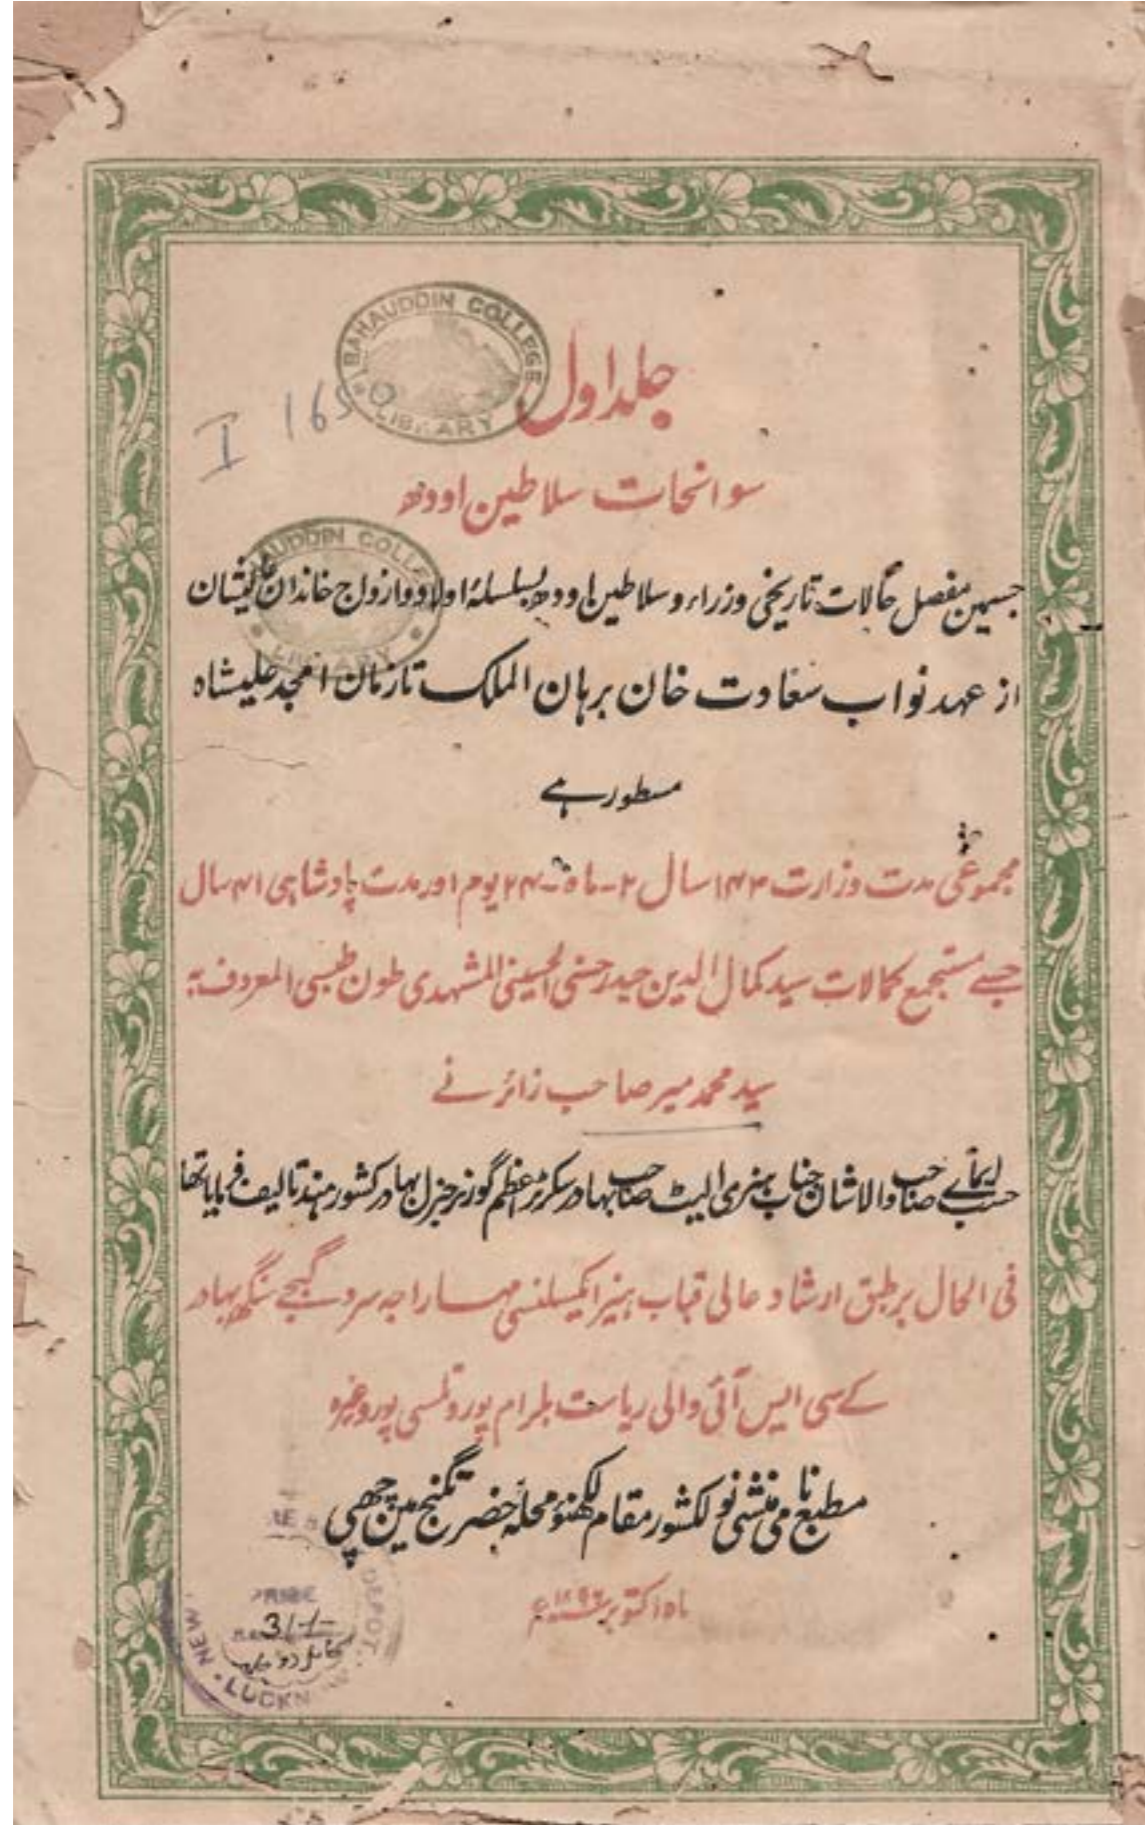 BAHAUDDIN COLLEGE
LIBRARY
جلد اول
I 1650
سوانحات سلاطین اودھ
AUDDIN COLLE
LIBRARY
جسمین مفصل حالات تاریخی وزراء و سلاطین اودھ بسلسلۂ اولاد و ازواج خاندان عالیشان
از عہد نواب سعادت خان برہان الملک تا زمان امجد علیشاہ
مسطور ہے
مجموعی مدت وزارت ۱۴۳ سال ۲-ماہ-۲۴ یوم اور مدت پادشاہی ۴۱ سال
جسے مستجمع کمالات سید کمال الدین حیدر حسنی الحسینی المشہدی طون طبسی المعروف بہ
سید محمد میر صاحب زائر نے
حسب ایمائے صاحب والاشان جناب ہنری الیٹ صاحب بہادر سکرٹر اعظم گورنر جنرل بہادر کشور ہند تالیف فرمایا تھا
فی الحال بر طبق ارشاد عالی قباب ہنر اکیسلنسی مہاراجہ سر دگبجے سنگھ بہادر
کے سی ایس آئی والی ریاست بلرام پور و تلسی پور وغیرہ
مطبع نامی منشی نولکشور مقام لکھنؤ محلہ حضرت گنج مین چھپی
ماہ اکتوبر ۱۸۹۶ء
NEW
DEPOT
PRICE
31-/-
کامل دو جلد
LUCKN